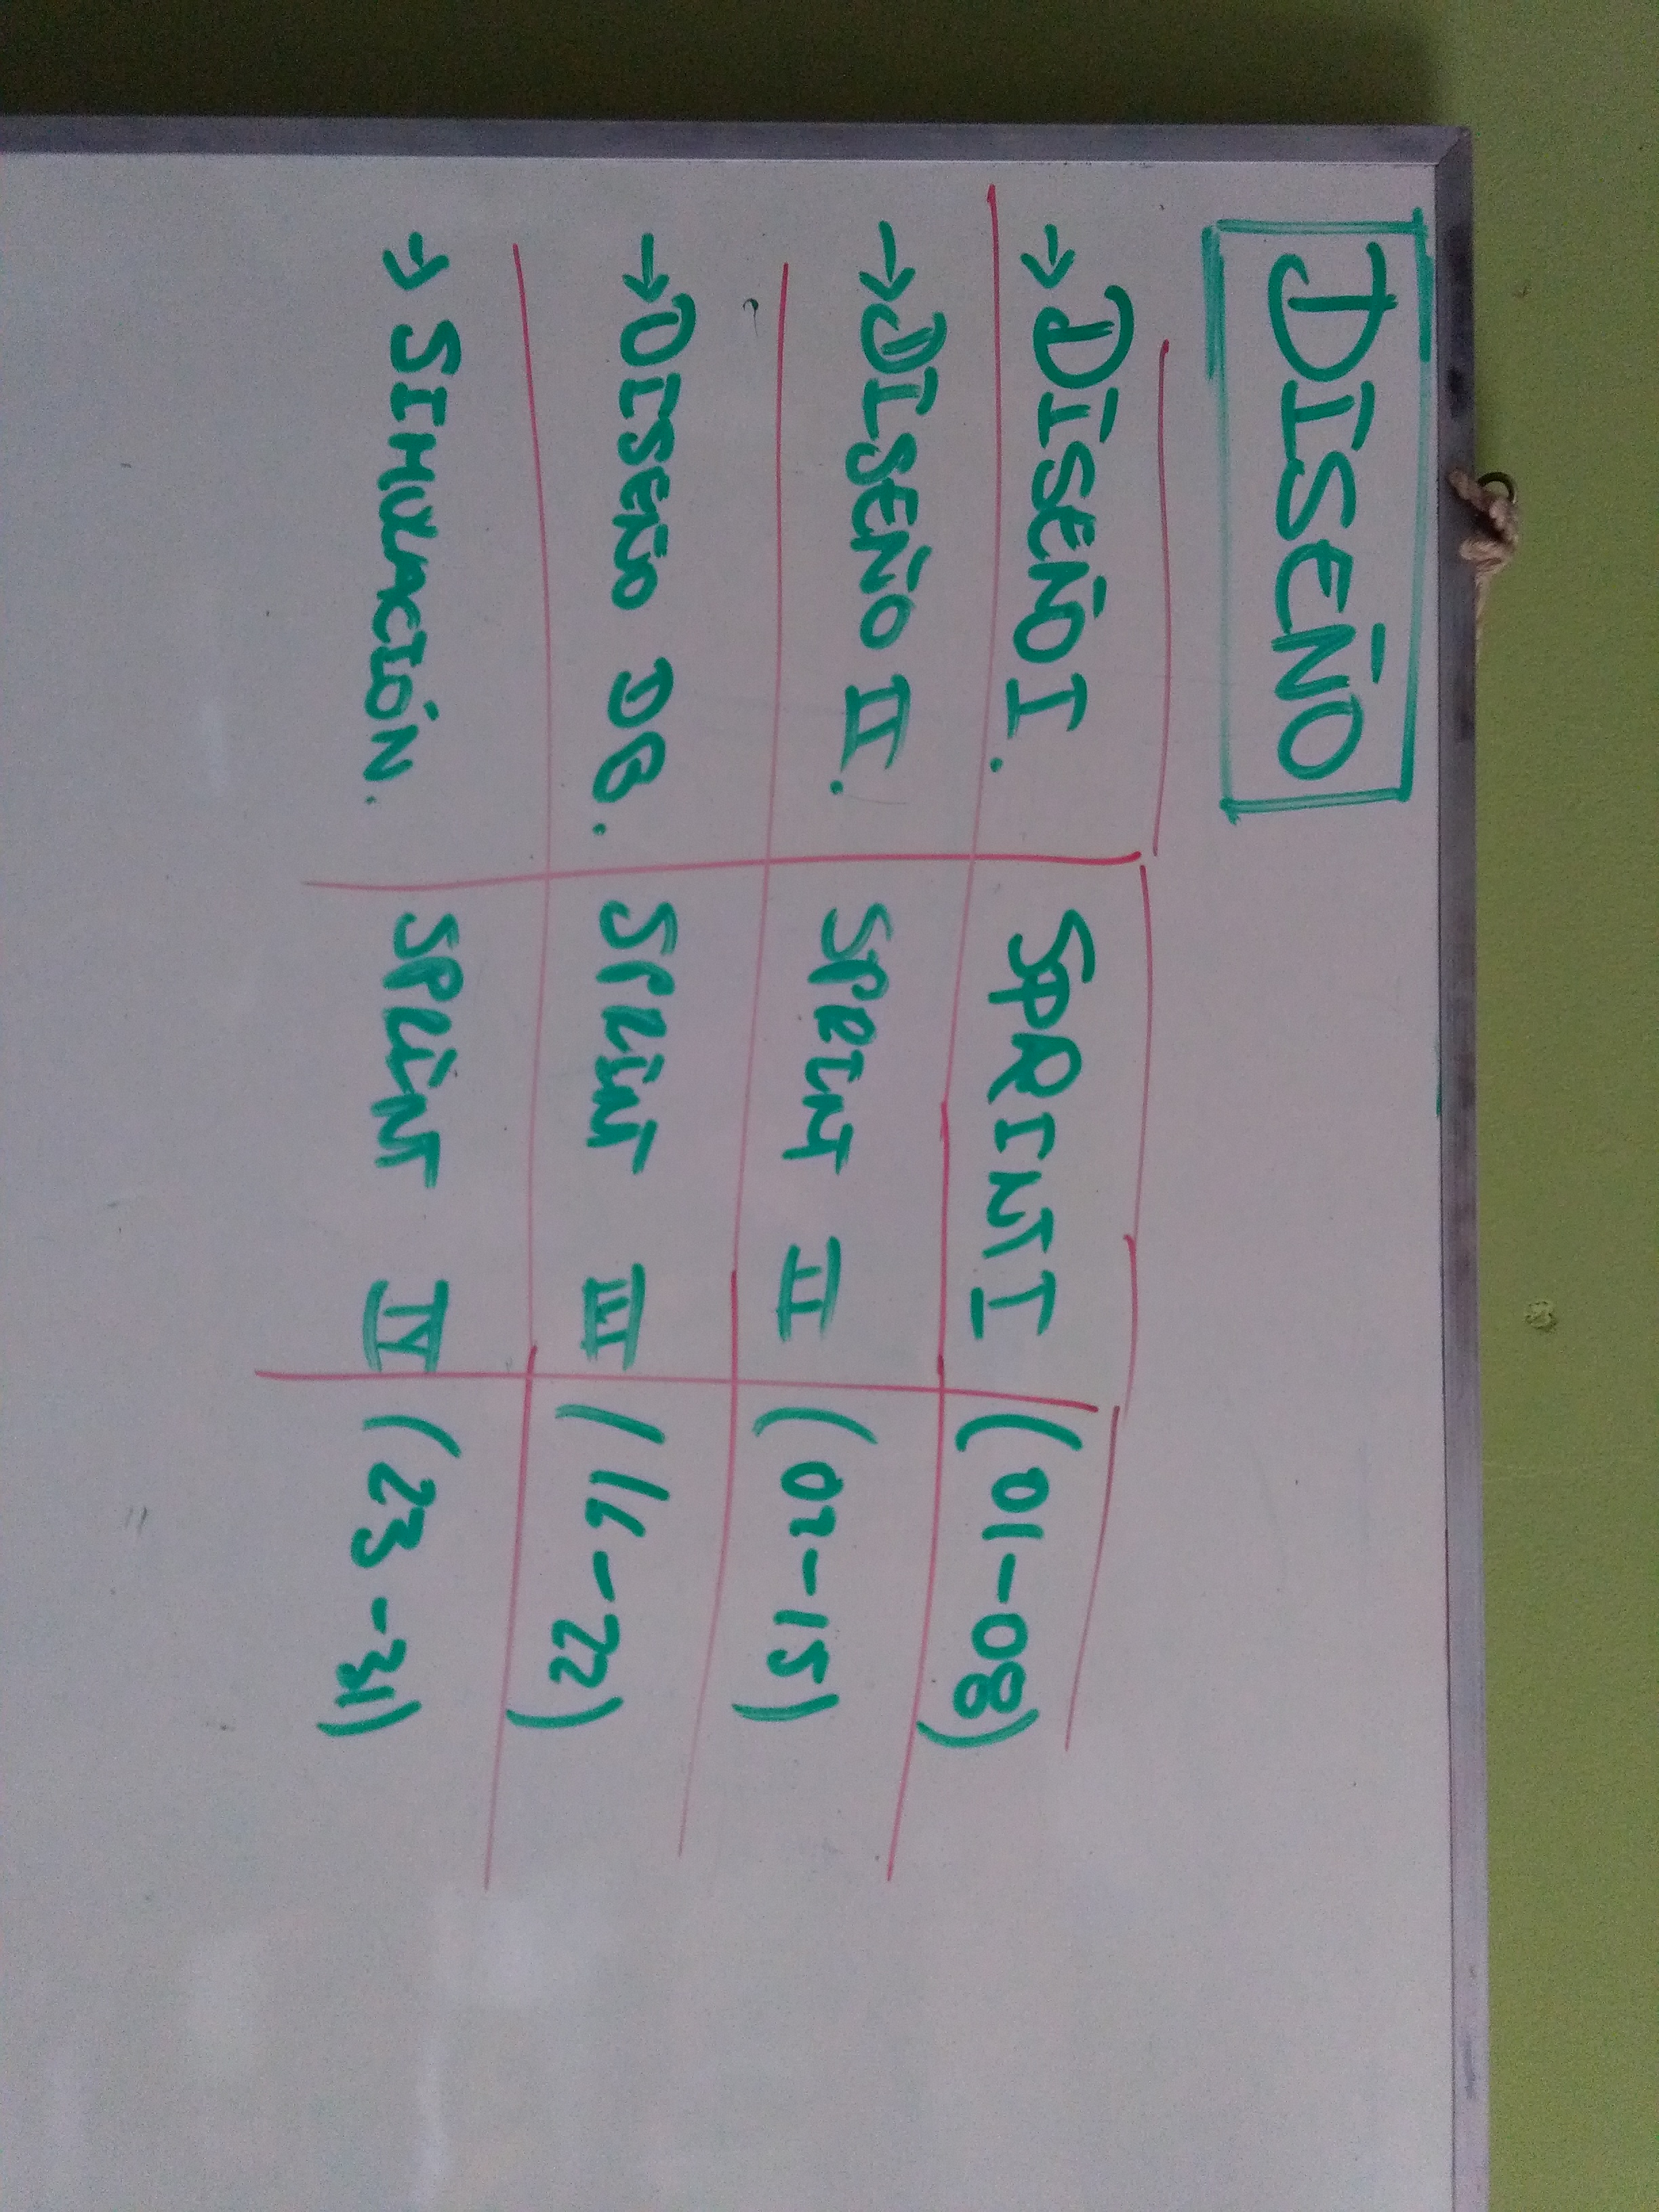 DISEÑO
→ DISEÑO I. SPRINT I (01-08)
→ DISEÑO II. SPRINT II (07-15)
→ DISEÑO DB. SPRINT III (16-22)
→ SIMULACIÓN. SPRINT IV (23-31)